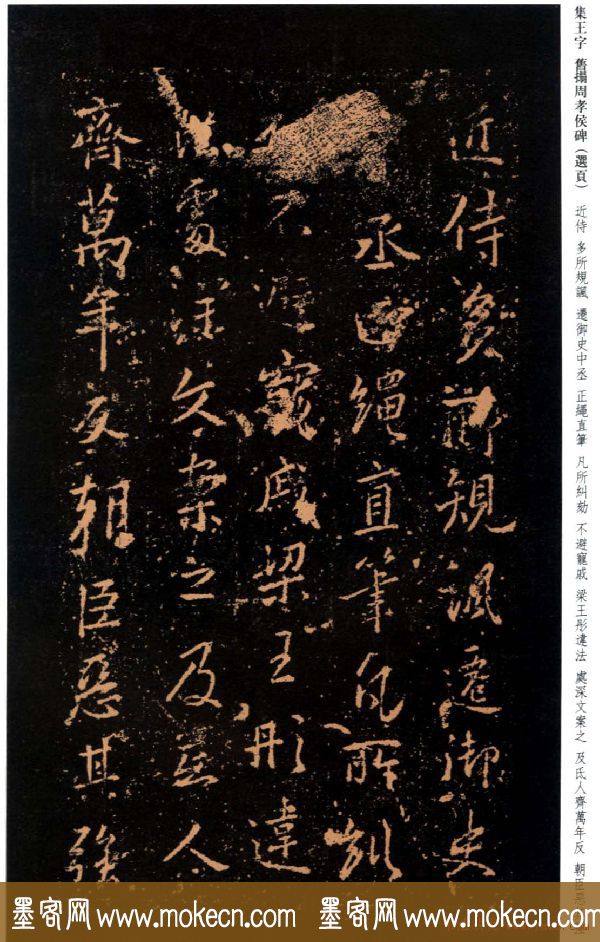 集王字 舊搨周孝侯碑（選頁） 近侍 多所規諷 遷御史中丞 正繩直筆 凡所糾劾 不避寵戚 梁王彤違法 處深文案之 及氐人齊萬年反 朝臣惡
近侍多所規諷遷御史
丞正繩直筆凡所糾
不避寵戚梁王彤違
法處深文案之及氐人
齊萬年反朝臣惡其強
墨客网 www.mokecn.com 墨客网 www.mokecn.com